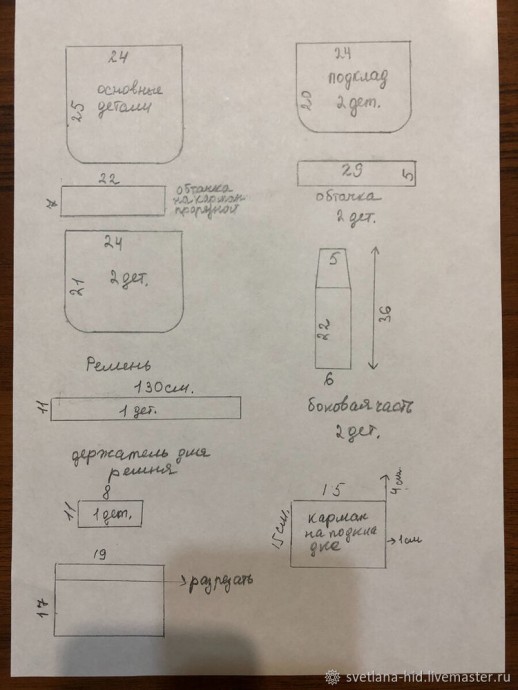 24
25
основные
детали
22
7
обтачка
на карман
прорезной
24
21
2 дет.
Ремень
130см.
11
1 дет.
держатель для
ремня
8
11
1 дет.
19
17
разрезать
24
20
подклад
2 дет.
29
5
обтачка
2 дет.
5
22
36
6
боковая часть
2 дет.
15
4 см
15 см.
карман
на подкла
дке
1 см
svetlana-hid.livemaster.ru